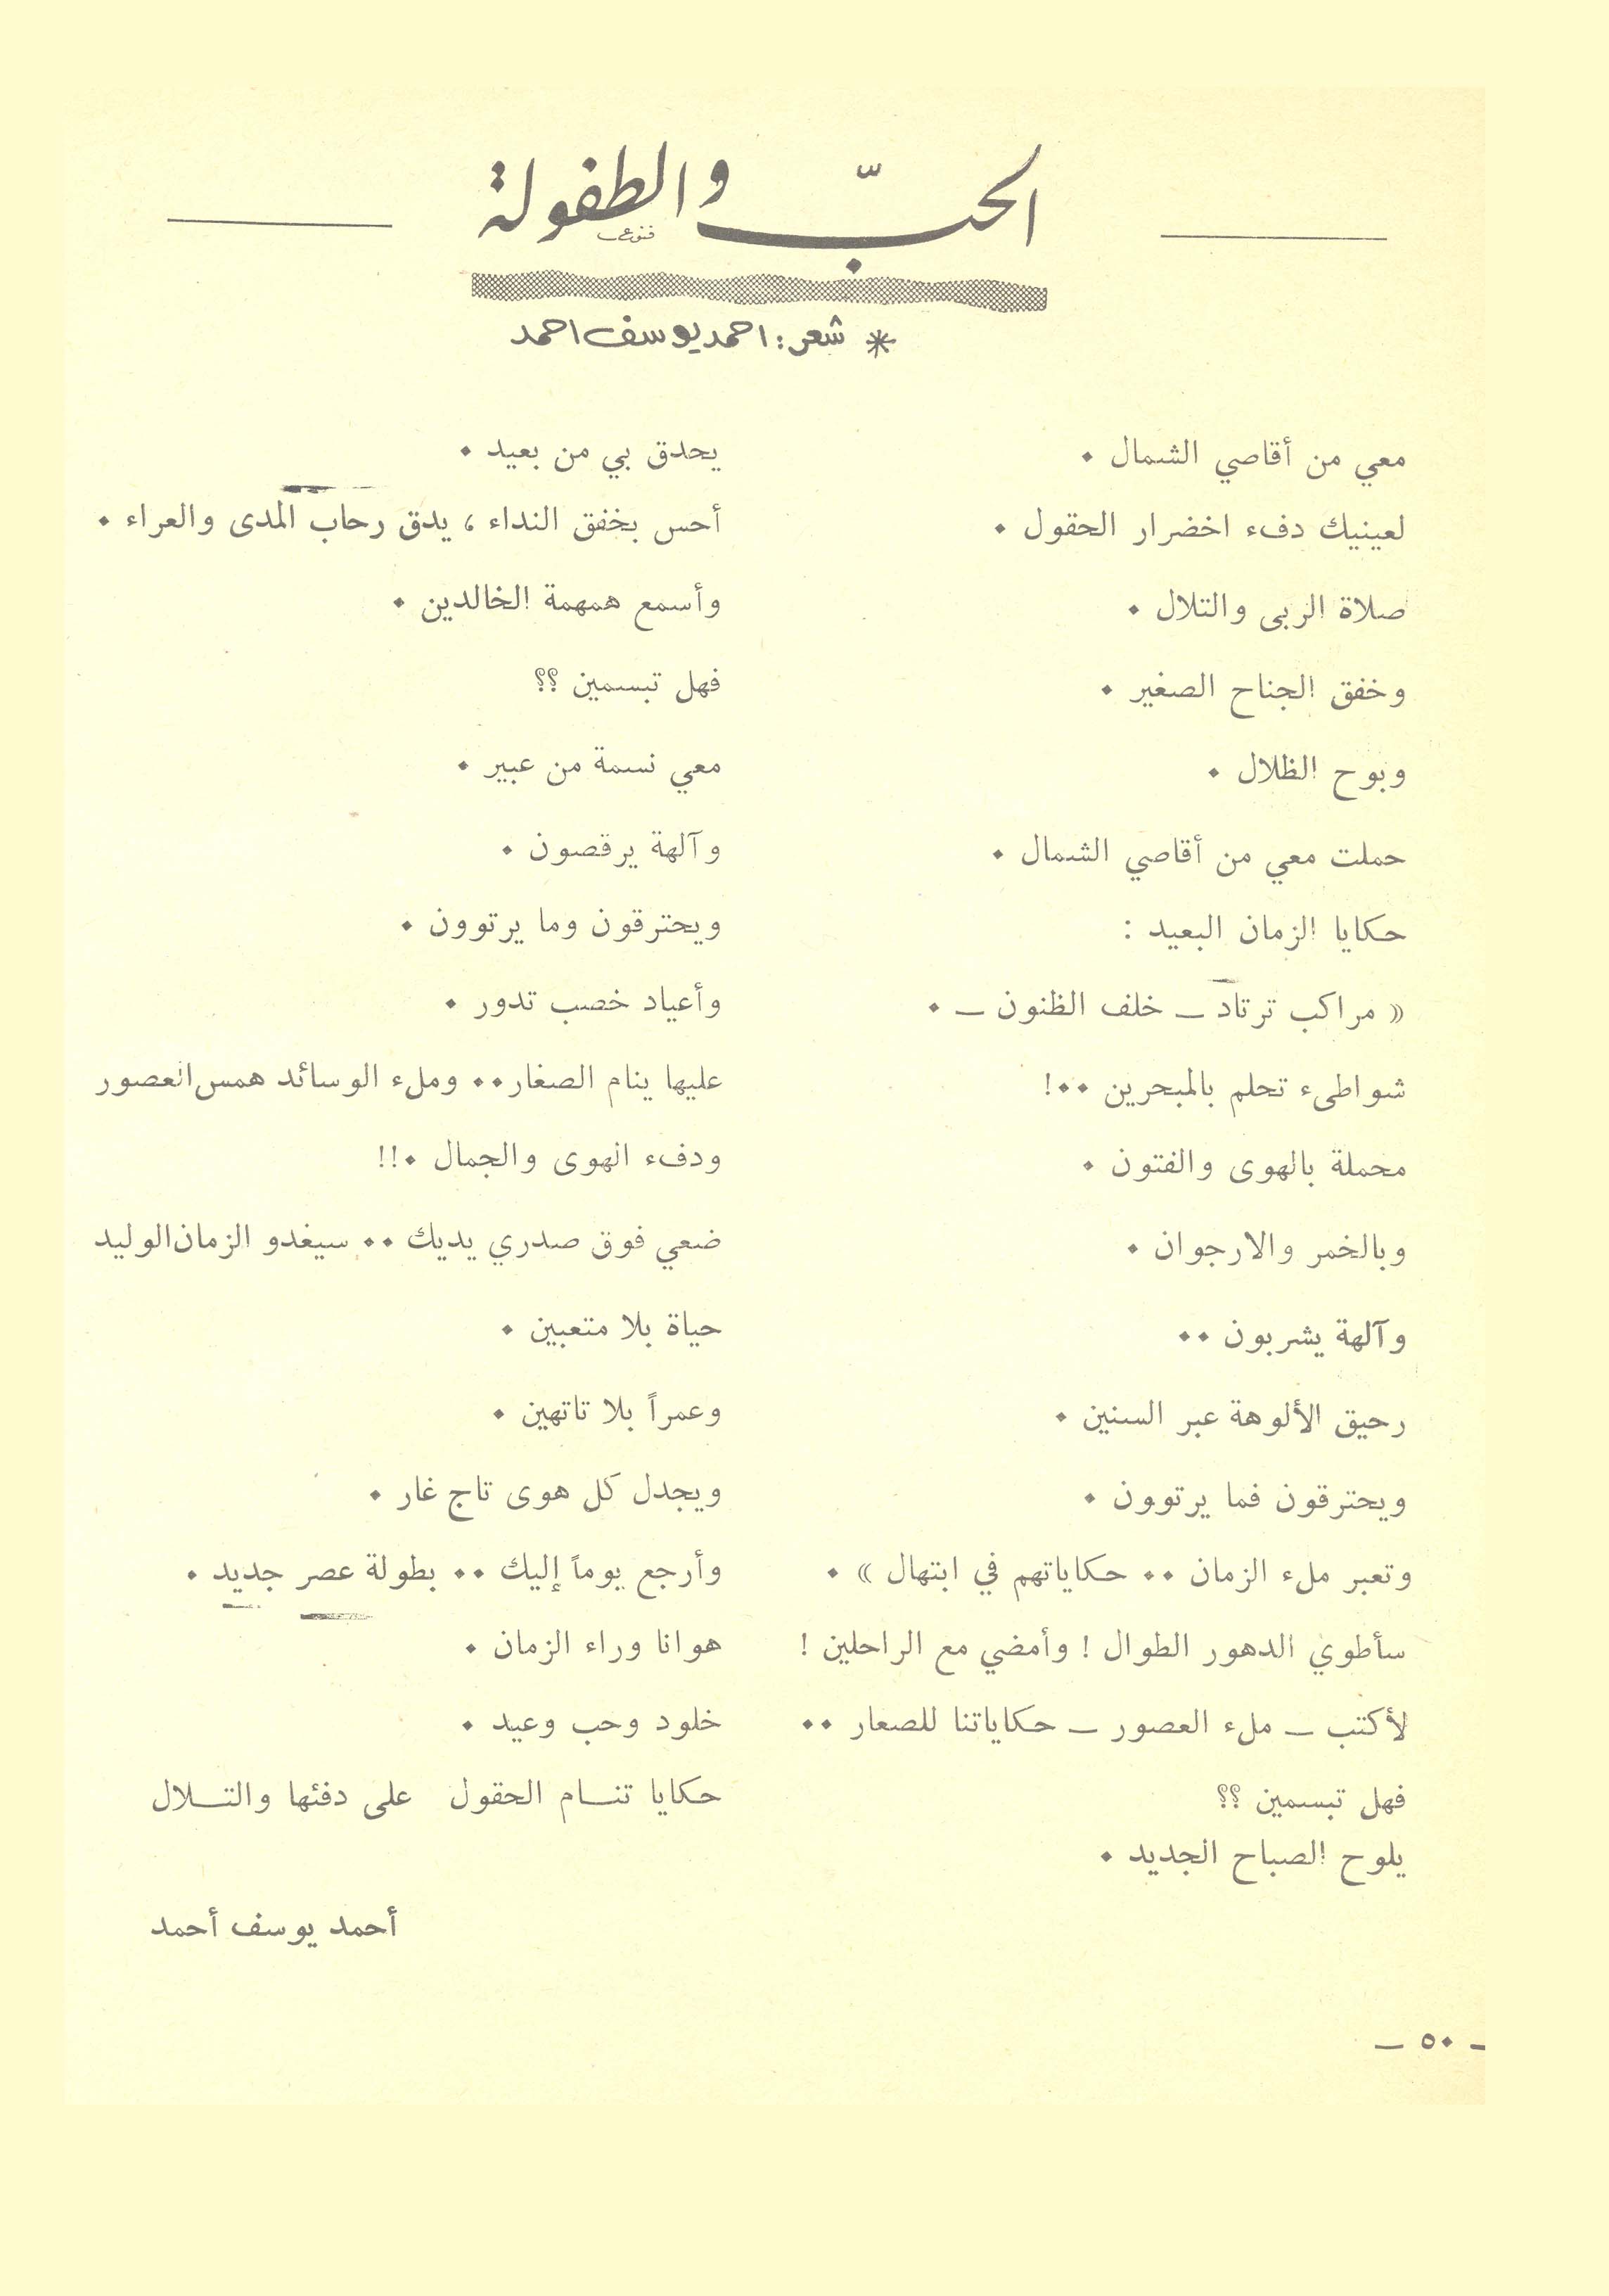 الحبّ والطفولة
* شعر: احمد يوسف احمد
معي من أقاصي الشمال .
لعينيك دفء اخضرار الحقول .
صلاة الربى والتلال .
وخفق الجناح الصغير .
وبوح الظلال .
حملت معي من أقاصي الشمال .
حكايا الزمان البعيد :
« مراكب ترتاد ــ خلف الظنون ــ .
شواطىء تحلم بالمبحرين ..!
محملة بالهوى والفتون .
وبالخمر والارجوان .
وآلهة يشربون ..
رحيق الألوهة عبر السنين .
ويحترقون فما يرتوون .
وتعبر ملء الزمان .. حكاياتهم في ابتهال » .
سأطوي الدهور الطوال ! وأمضي مع الراحلين !
لأكتب ــ ملء العصور ــ حكاياتنا للصعار ..
فهل تبسمين ؟؟
يلوح الصباح الجديد .
يحدق بي من بعيد .
أحس بخفق النداء ، يدق رحاب المدى والعراء .
وأسمع همهمة الخالدين .
فهل تبسمين ؟؟
معي نسمة من عبير .
وآلهة يرقصون .
ويحترقون وما يرتوون .
وأعياد خصب تدور .
عليها ينام الصغار .. وملء الوسائد همس العصور
ودفء الهوى والجمال .!!
ضعي فوق صدري يديك .. سيغدو الزمان الوليد
حياة بلا متعبين .
وعمراً بلا تاتهين .
ويجدل كل هوى تاج غار .
وأرجع يوماً إليك .. بطولة عصر جديد .
هوانا وراء الزمان .
خلود وحب وعيد .
حكايا تنـــام الحقول على دفئها والتـــلال
أحمد يوسف أحمد
ــ ٥٠ ــ